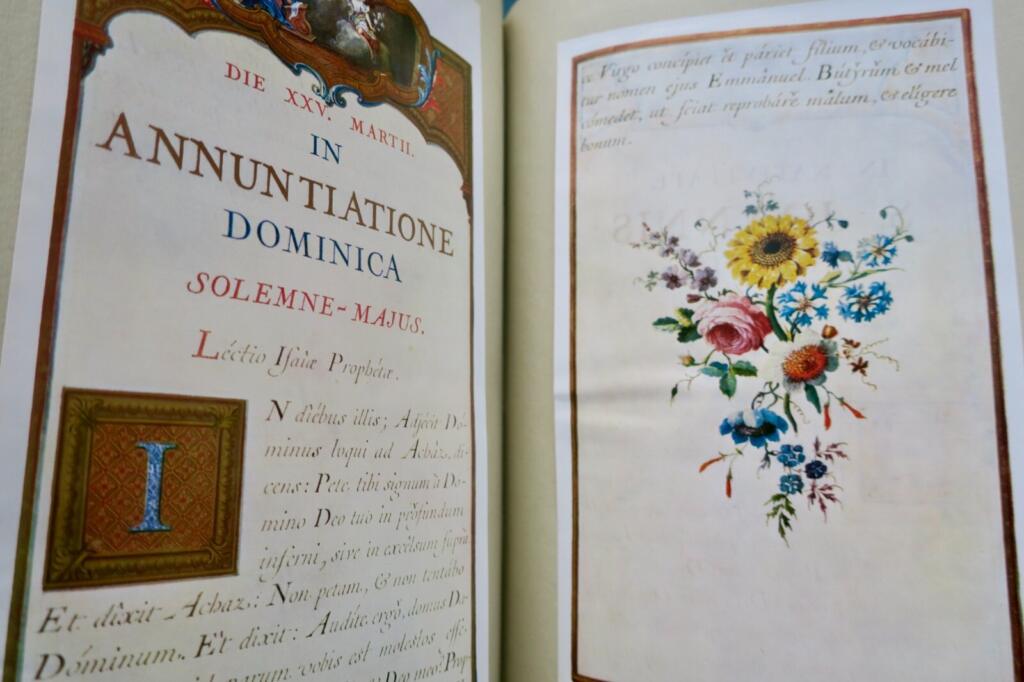 DIE XXV. MARTII.
IN
ANNUNTIATIONE
DOMINICA
SOLEMNE-MAJUS.
Léctio Isaiæ Prophétæ.
IN diébus illis; Adjécit Dó-
minus loqui ad Achàz, di-
cens: Pete tibi signum à Do-
mino Deo tuo in pr̃ofúndum
inférni, sive in excélsum suprà
Et dixit Achaz: Non petam, & non tentábo
Dóminum. Et dixit: Audíte ergò, domus Da-
parum vobis est moléstos esse
Deo meo? Prop-
ce Virgo concípiet et páriet fílium, & vocábi-
tur nomen ejus Emmánuel. Bútyrum & mel
cómedet, ut sciat reprobáre malum, & elígere
bonum.